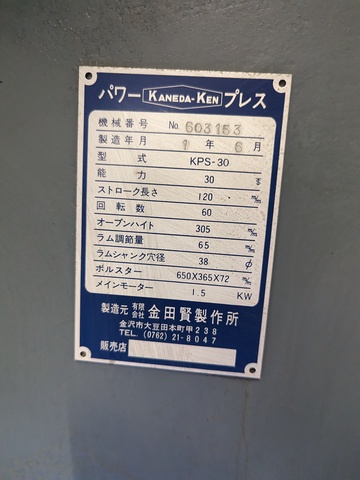 パワー KANEDA-KEN プレス
機械番号 No. 603153
製造年月 1年 6月
型式 KPS-30
能力 30 t
ストローク長さ 120 m/m
回転数 60
オープンハイト 305 m/m
ラム調節量 65 m/m
ラムシャンク穴径 38 φ
ボルスター 650X365X72 m/m
メインモーター 1.5 KW
製造元 有限会社 金田賢製作所
金沢市大豆田本町甲238
TEL. (0762) 21-8047
販売店